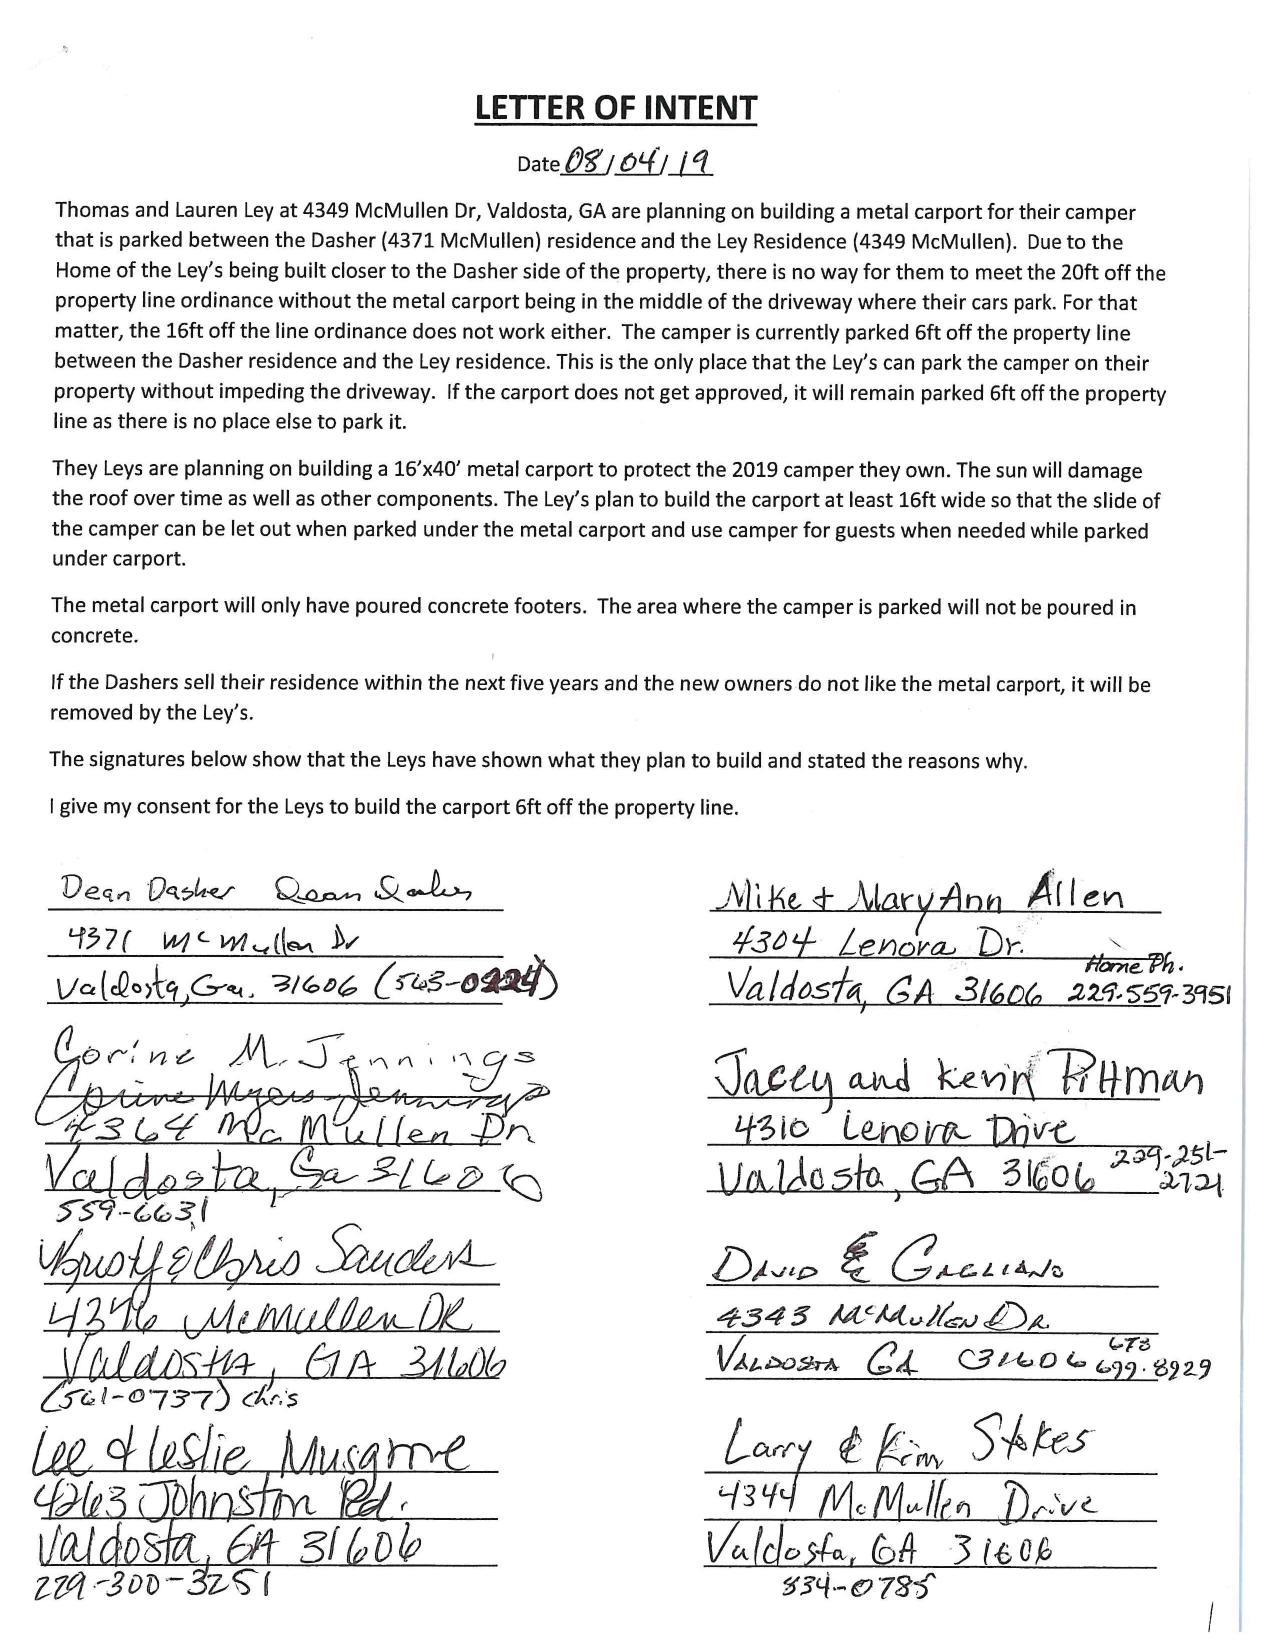 LETTER OF INTENT
Date 08/04/19
Thomas and Lauren Ley at 4349 McMullen Dr, Valdosta, GA are planning on building a metal carport for their camper
that is parked between the Dasher (4371 McMullen) residence and the Ley Residence (4349 McMullen). Due to the
Home of the Ley's being built closer to the Dasher side of the property, there is no way for them to meet the 20ft off the
property line ordinance without the metal carport being in the middle of the driveway where their cars park. For that
matter, the 16ft off the line ordinance does not work either. The camper is currently parked 6ft off the property line
between the Dasher residence and the Ley residence. This is the only place that the Ley's can park the camper on their
property without impeding the driveway. If the carport does not get approved, it will remain parked 6ft off the property
line as there is no place else to park it.
They Leys are planning on building a 16'x40' metal carport to protect the 2019 camper they own. The sun will damage
the roof over time as well as other components. The Ley's plan to build the carport at least 16ft wide so that the slide of
the camper can be let out when parked under the metal carport and use camper for guests when needed while parked
under carport.
The metal carport will only have poured concrete footers. The area where the camper is parked will not be poured in
concrete.
If the Dashers sell their residence within the next five years and the new owners do not like the metal carport, it will be
removed by the Ley's.
The signatures below show that the Leys have shown what they plan to build and stated the reasons why.
I give my consent for the Leys to build the carport 6ft off the property line.
Dean Dasher Dean Dasher
4371 McMullen Dr
Valdosta, Ga. 31606 (563-0224)
Corine M. Jennings
Corine Myers Jennings
4364 Mc Mullen Dr
Valdosta, Ga 31606
559-6631
Kristy & Chris Sanders
McMullen DR
Valdosta, GA 31606
(561-0737) Chris
Lee & Leslie Musgrove
4263 Johnston Rd.
Valdosta, GA 31606
229-300-3251
Mike + MaryAnn Allen
4304 Lenora Dr.
Home Ph.
Valdosta, GA 31606 229-559-3951
Jacey and Kevin Pittman
4310 Lenora Drive
Valdosta, GA 31606 229-251-
2721
David & Gagliano
4343 McMullen Dr.
Valdosta GA 31606 678
699-8929
Larry & Kim Stokes
4344 McMullen Drive
Valdosta, GA 31606
834-0785
1